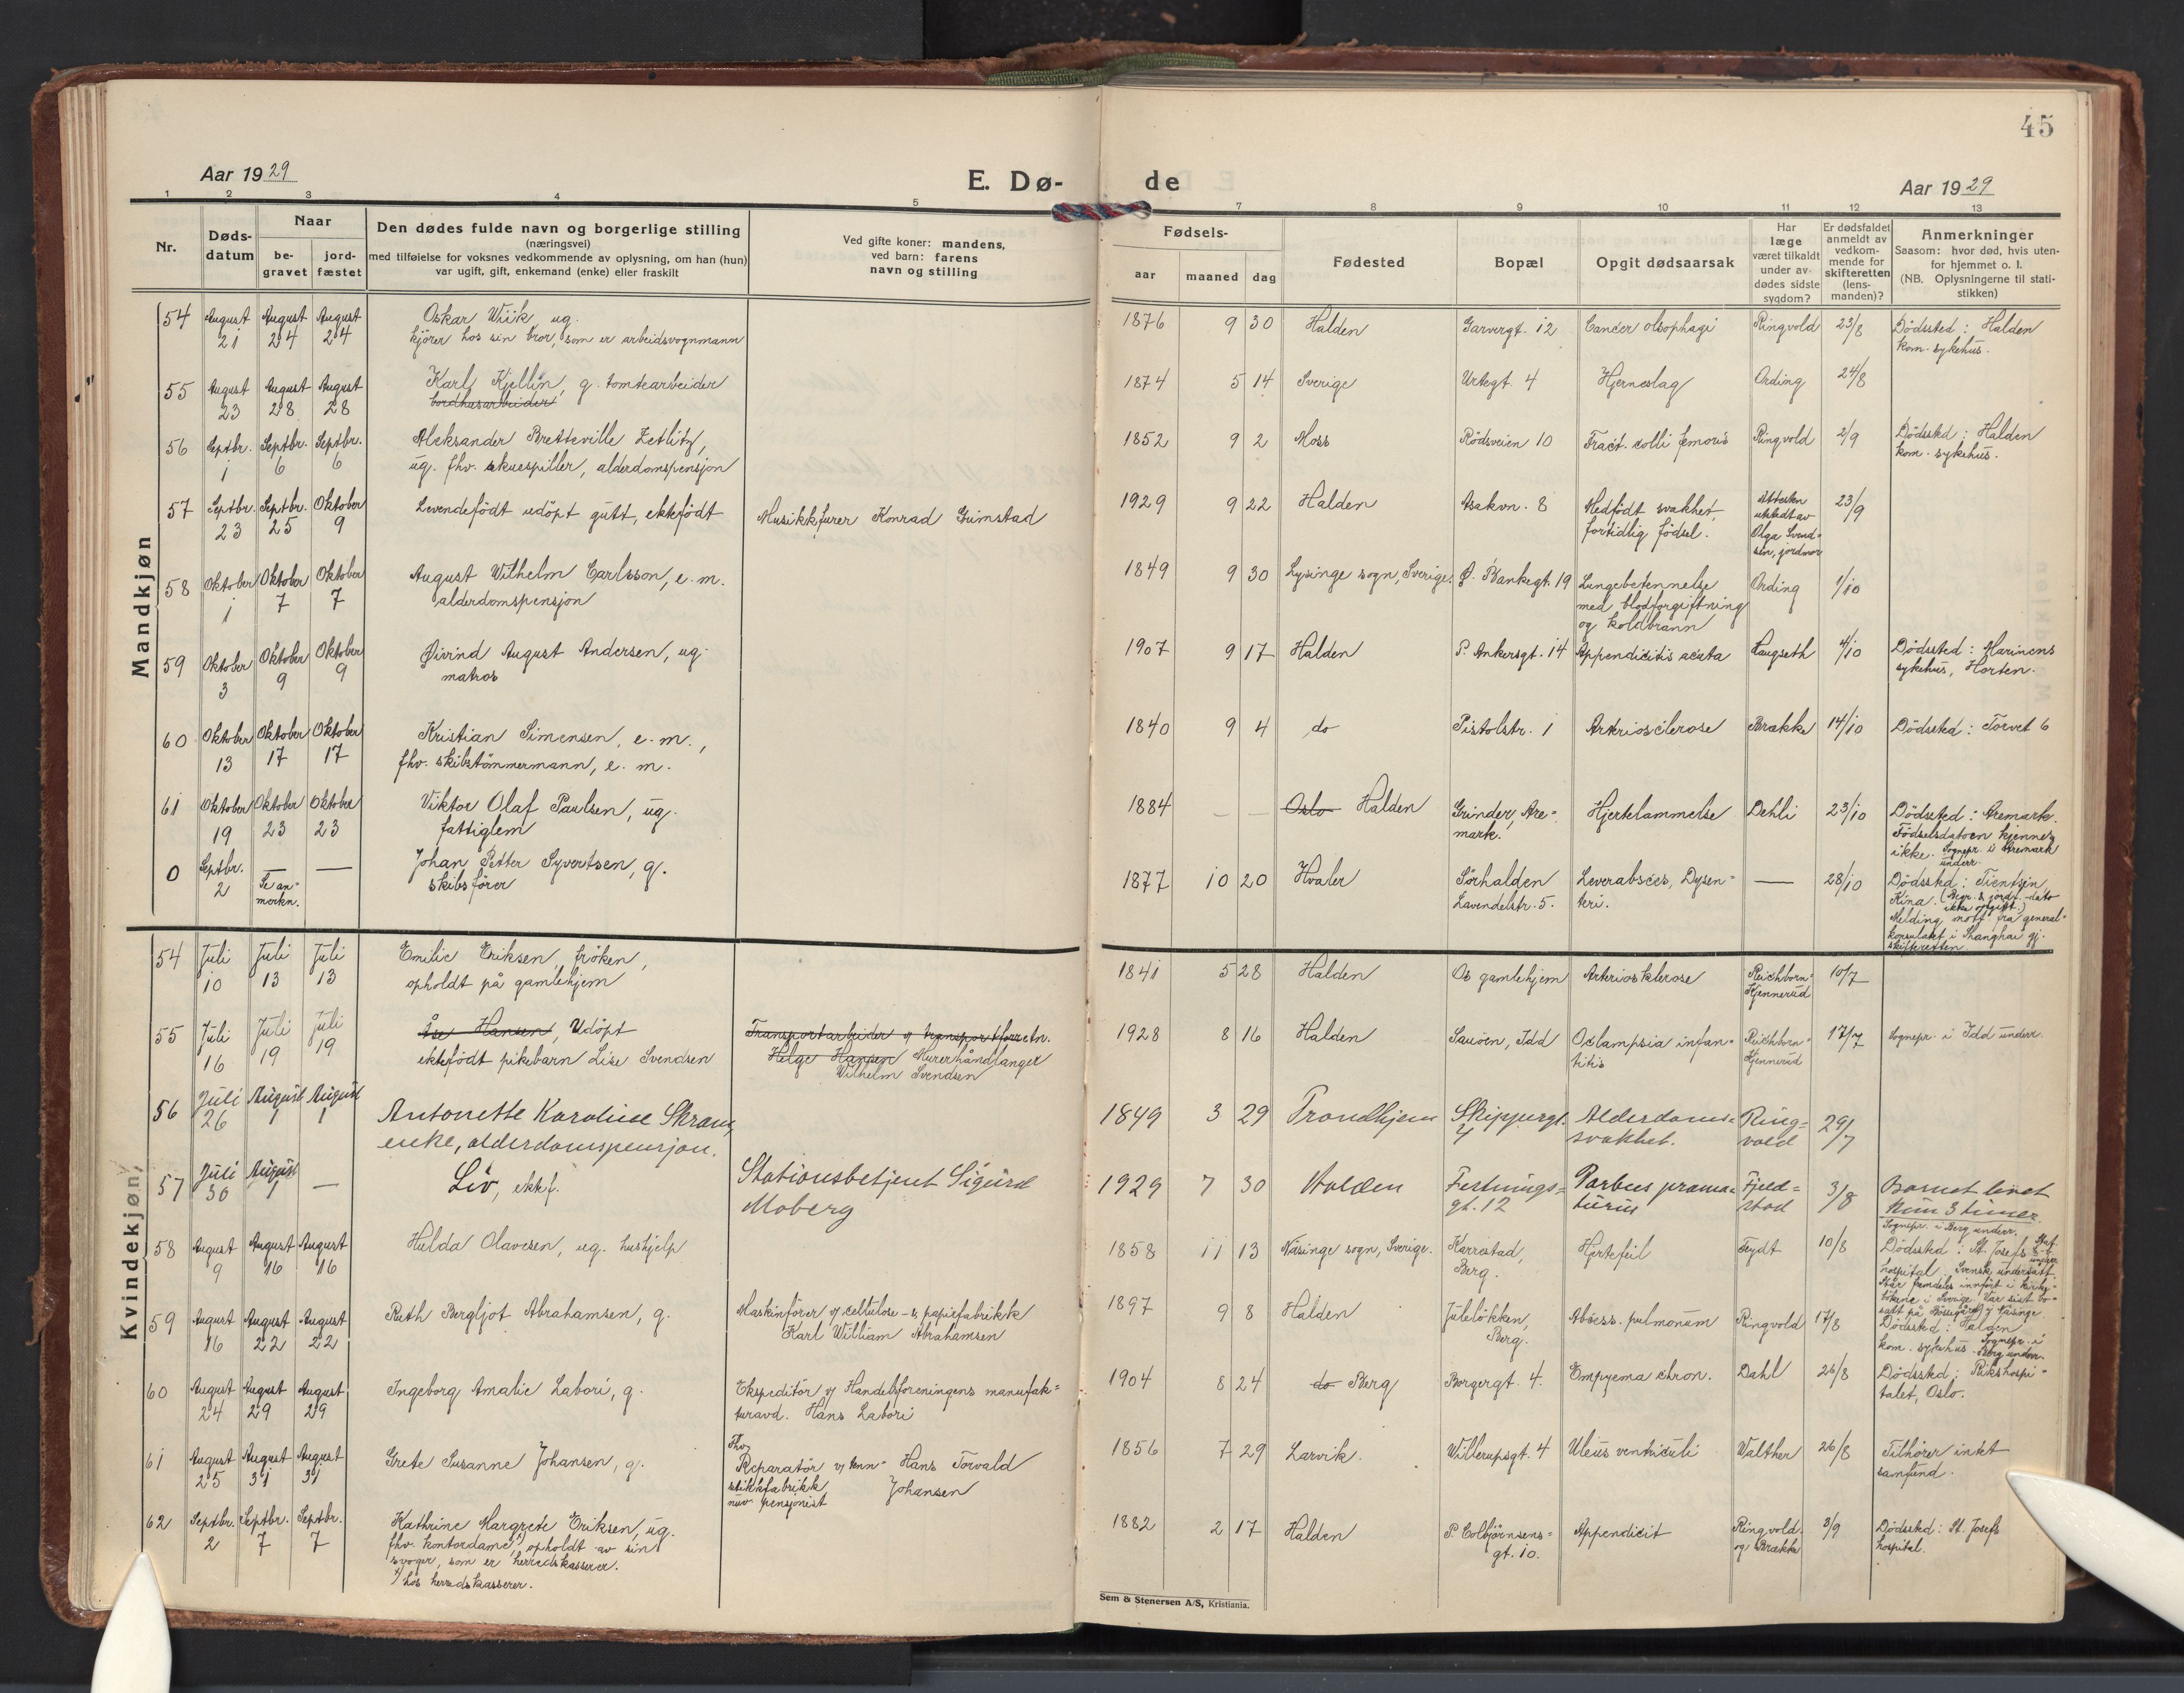 45
Aar 1929
E. Dø-
de
Aar 1929
1 2 3 4 5 7 8 9 10 11 12 13
Nr.
Døds-
datum
Naar
be-
gravet
jord-
fæstet
Den dødes fulde navn og borgerlige stilling
(næringsvei)
med tilføielse for voksnes vedkommende av oplysning, om han (hun)
var ugift, gift, enkemand (enke) eller fraskilt
Ved gifte koner: mandens,
ved barn: farens
navn og stilling
Fødsels-
aar maaned dag
Fødested
Bopæl
Opgit dødsaarsak
Har
læge
været tilkaldt
under av-
dødes sidste
sygdom?
Er dødsfaldet
anmeldt av
vedkom-
mende for
skifteretten
(lens-
manden)?
Anmerkninger
Saasom: hvor død, hvis uten-
for hjemmet o. l.
(NB. Oplysningerne til stati-
stikken)
Mandkjøn
54 August August August Oskar Wiik ug. 1876 9 30 Halden Garvergt. 12 Cancer olsophagi Ringvold 23/8 Dödssted: Halden
21 24 24 kjörer hos sin bror, som er arbeidsvognmann kom. sykehus.
55 August August August Karl Kjellin, g. tomtearbeider 1874 5 14 Sverige Urtegt. 4 Hjerneslag Ording 24/8
23 28 28 bordhusarbeider
56 Septbr. Septbr. Septbr. Aleksander Bretteville Zetlitz, 1852 9 2 Moss Rödsveien 10 Fract. colli femoris Ringvold 2/9 Dödssted: Halden
1 6 6 ug. fhv. skuespiller, alderdomspensjon kom. sykehus.
57 Septbr. Septbr. Oktober Levendefödt udöpt gutt, ektefödt Musikkfurer Konrad Grimstad 1929 9 22 Halden Asakvn. 8 Medfödt svakhet, Attesten 23/9
23 25 9 fortidlig födsel. utstedt av
Olga Svend-
sen, jordmor
58 Oktober Oktober Oktober August Wilhelm Carlsson, e. m. 1849 9 30 Lysinge sogn, Sverige. Ø. Bankegt. 19 Lungebetennelse Ording 1/10
1 7 7 alderdomspensjon med blodforgiftning
og koldbrann
59 Oktober Oktober Oktober Øivind August Andersen, ug. 1907 9 17 Halden P. Ankersgt. 14 Appendicitis acuta Laugseth 4/10 Dödssted: Marinens
3 9 9 matros sykehus, Horten.
60 Oktober Oktober Oktober Kristian Simensen, e. m., 1840 9 4 do Pistolstr. 1 Arteriosclerose Brække 14/10 Dödssted: Torvet 6
13 17 17 fhv. skibstömmermann, e. m.
61 Oktober Oktober Oktober Viktor Olaf Paulsen, ug. 1884 — — Oslo Halden Grinder, Are- Hjertelammelse Dehli 23/10 Dödssted: Aremark.
19 23 23 fattiglem mark. Födselsdatoen kjennes
ikke. Sognepr. i Aremark
underr.
0 Septbr. — — Johan Petter Syvertsen, g. 1877 10 20 Hvaler Sörhalden Leverabsces, Dysen- — 28/10 Dödssted: Tientsin,
2 Se an- skibsförer Lavendelstr. 5. teri. Kina. (Begr. & jordf.-dato
merkn. ikke opgitt.)
Melding mott. fra general-
konsulatet i Shanghai gj.
skifteretten
Kvindekjøn
54 Juli Juli Juli Emilie Eriksen, fröken, 1841 5 28 Halden Os gamlehjem Arteriosklerose Reichborn- 10/7
10 13 13 opholdt på gamlehjem Kjennerud
55 Juli Juli Juli Åse Hansen, Udöpt Transportarbeider v/ transportforretn. 1928 8 16 Halden Sauöen, Idd Eclampsia infan- Reichborn- 17/7 Sognepr. i Idd underr.
16 19 19 ektefödt pikebarn Lise Svendsen Helge Hansen Murerhåndlanger titis Kjennerud
Wilhelm Svendsen
56 Juli August August Antonette Karoline Skram, 1849 3 29 Trondhjem Skippergt. Alderdoms- Ring- 29/7
26 1 1 enke, alderdomspensjon. 4 svakhet. vold
57 Juli August — Liv, ektef. Stationsbetjent Sigurd 1929 7 30 Halden Festnings- Partus prama- Fjeld- 3/8 Barnet levet
30 1 Moberg gt. 12 turus stad kun 3 timer.
Sognepr. i Berg underr.
58 August August August Hulda Olavesen, ug. hushjelp 1858 11 13 Näsinge sogn, Sverige. Karrestad, Hjertefeil Feydt 10/8 Dödssted: St. Josefs
9 16 16 Berg. hospital. Svensk undersått.
Står fremdeles innfört i kirke-
bökene i Sverige. Var sist bo-
satt på i Näsinge.
59 August August August Ruth Bergljot Abrahamsen, g. Maskinförer v/ cellulose- & papirfabrikk 1897 9 8 Halden Juleløkken, Abscess. pulmonum Ringvold 17/8 Dödssted: Halden
16 22 22 Karl William Abrahamsen Berg. kom. sykehus. Sognepr. i
Berg underr.
60 August August August Ingeborg Amalie Labori, g. Ekspeditör v/ Handelsforeningens manufak- 1904 8 24 do Berg Borgergt. 4. Empyema chron. Dahl 26/8 Dödssted: Rikshospi-
24 29 29 turavd. Hans Labori talet, Oslo.
61 August August August Grete Susanne Johansen, g. Fhv. 1856 7 29 Larvik. Willerupsgt. 4 Ulcus ventriculi Walther 26/8 Tilhörer intet
25 31 31 Reparatör v/ tenn- Hans Torvald samfund.
stikkfabrikk Johansen
nuv. pensjonist
62 Septbr. Septbr. Septbr. Kathrine Margrete Eriksen, ug. 1882 2 17 Halden P. Colbjörnsens- Appendicit Ringvold 3/9 Dödssted: St. Josefs
2 7 7 fhv. kontordame, opholdt av sin gt. 10. og Brække hospital.
svoger, som er herredskasserer.
x) hos herredskasserer.
Sem & Stenersen A/S, Kristiania.